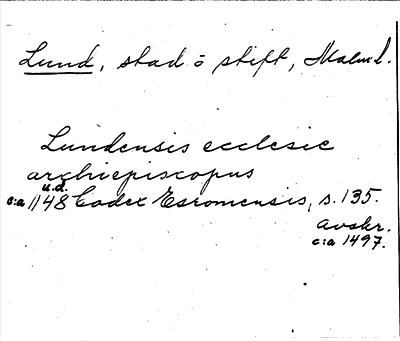 Lund, stad o stift, Malml.
Lundensis ecclesie
archiepiscopus
u.d.
c:a 1148 Codex Esromensis, s. 135.
avskr.
c:a 1497.